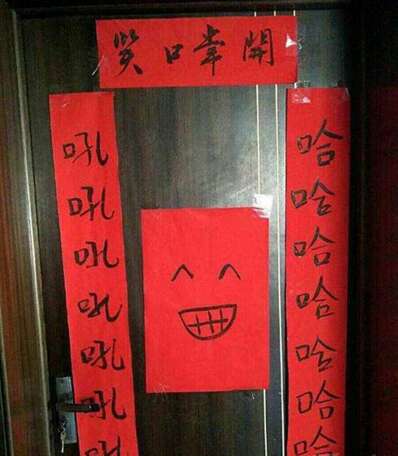 笑口常開
哈哈哈哈哈哈哈
吼吼吼吼吼吼吼